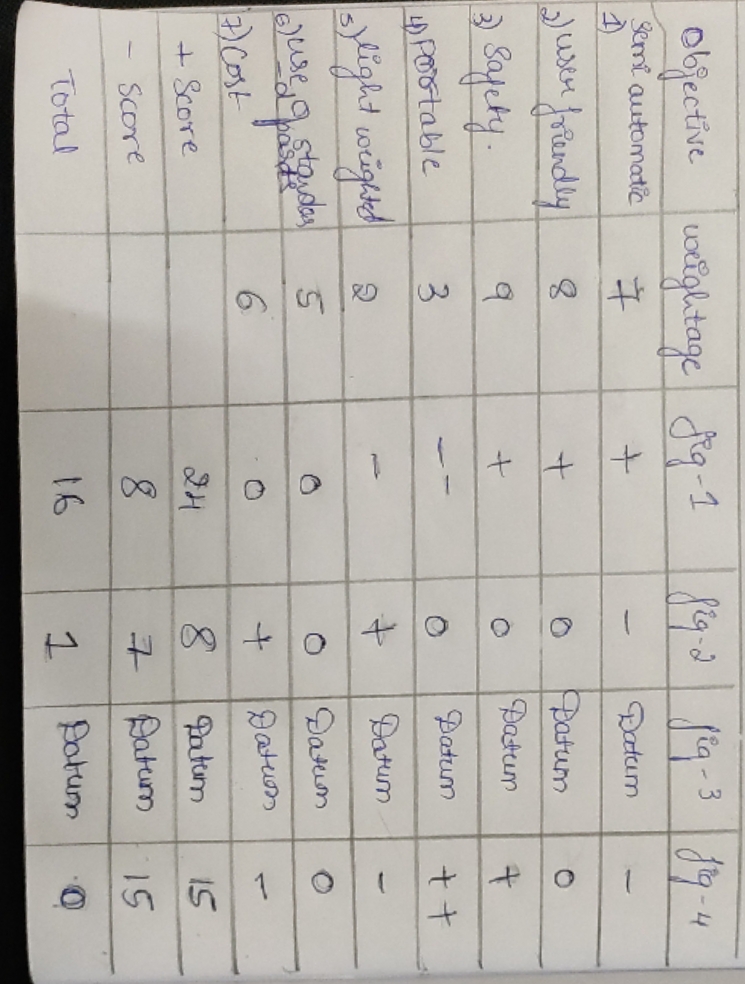 Objective weightage fig-1 fig-2 fig-3 fig-4
1) semi automatic 7 + - Datum -
2) user friendly 8 + 0 Datum 0
3) Safety. 9 + 0 Datum +
4) Portable 3 -- 0 Datum ++
5) light weighted 2 - + Datum -
6) use of standar
-d parts 5 0 0 Datum 0
7) Cost 6 0 + Datum -
+ Score 24 8 Datum 15
- Score 8 7 Datum 15
Total 16 1 Datum 0